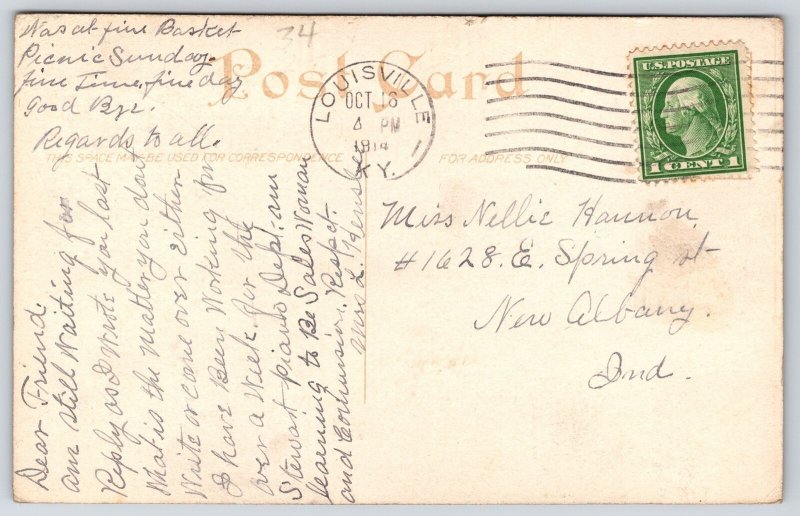 Was at fine Basket
Picnic Sunday.
fine Time, fine day
Good Bye.
Regards to all.
34
Post Card
THIS SPACE MAY BE USED FOR CORRESPONDENCE
FOR ADDRESS ONLY
LOUISVILLE
OCT 16
4 PM
1914
KY.
U.S. POSTAGE
1 CENT 1
Miss Nellie Hannon
#1628. E. Spring st
New Albany.
Ind.
Dear Friend.
am still Waiting for
Reply as I Wrote you last
What is the Matter you dont
Write or come over Either
I have Been Working for
over a Week. for the
Stewart piano Dept. am
learning to Be Sales Woman
and Commision. Respect.
Miss L. Hensley